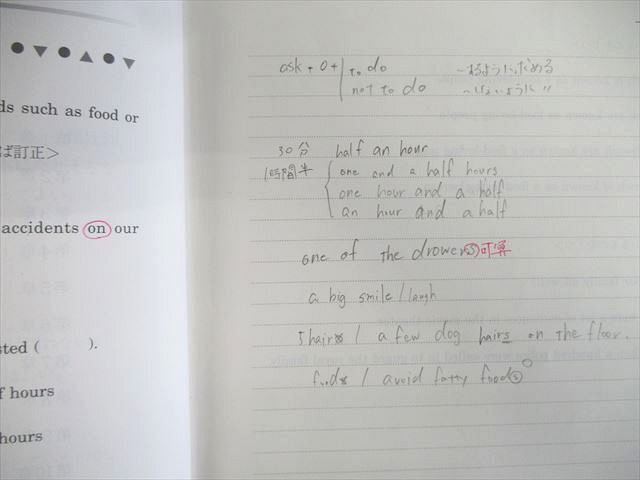 ds such as food or
ば訂正>
accidents on our
sted (　　).
f hours
hours
ask + O + to do ～するように
not to do ～しないように 〃
30分 half an hour
1時間半 one and a half hours
one hour and a half
an hour and a half
one of the drowers 可算
a big smile / laugh
hair / a few dog hairs on the floor.
food / avoid fatty foods